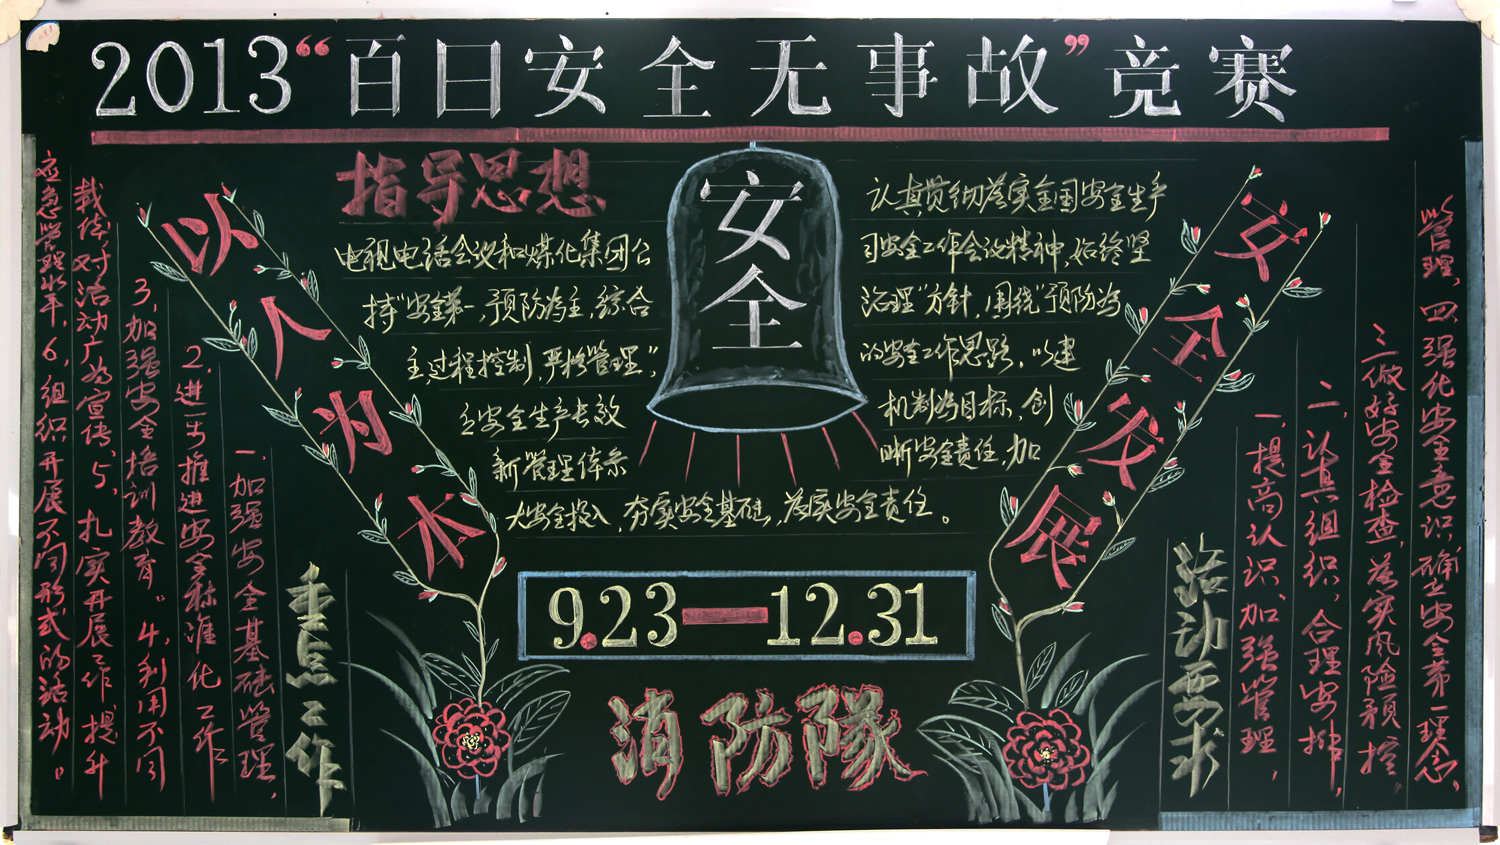 2013“百日安全无事故”竞赛
指导思想
认真贯彻落实全国安全生产
电视电话会议和煤化集团公
司安全工作会议精神,始终坚
持“安全第一,预防为主,综合
治理”方针,围绕“预防为
主,过程控制,严格管理”,
的安全工作思路,以建
立安全生产长效
机制为目标,创
新管理体系
晰安全责任,加
大安全投入,夯实安全基础,落实安全责任。
安全
以人为本
安全发展
9.23—12.31
消防隊
重点工作
一.加强安全基础管理,
2.进一步推进安全标准化工作
3,加强安全培训教育。4,利用不同
载体对活动广为宣传,5,扎实开展工作提升
应急管理水平,6,组织开展不同形式的活动。
活动要求
一,提高认识,加强管理,
二,认真组织,合理安排,
三做好安全检查,落实风险预控
管理,四,强化安全意识确立安全第一理念,